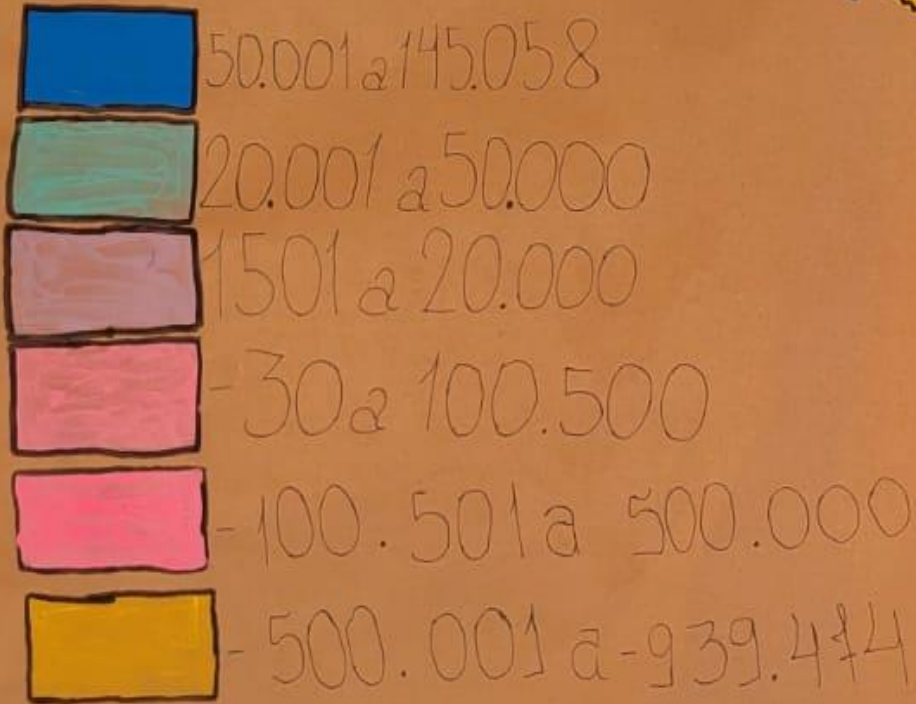 50.001 a 145.058
20.001 a 50.000
1501 a 20.000
-30 a 100.500
-100.501 a 500.000
-500.001 a -939.414